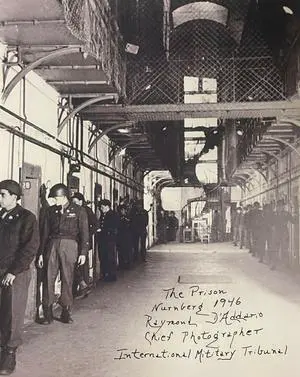 The Prison
Nurnberg 1946
Raymond D'Addario
Chief Photographer
International Military Tribunal